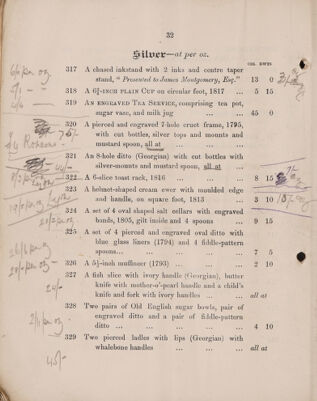 32
Silver—at per oz.
OZS. DWTS.
317 A chased inkstand with 2 inks and centre taper
stand, "Presented to James Montgomery, Esq." 13 0
318 A 6½-inch PLAIN CUP on circular foot, 1817 ... 5 15
319 AN ENGRAVED TEA SERVICE, comprising tea pot,
sugar vase, and milk jug ... 45 0
320 A pierced and engraved 7-hole cruet frame, 1795,
with cut bottles, silver tops and mounts and
mustard spoon, all at
321 An 8-hole ditto (Georgian) with cut bottles with
silver-mounts and mustard spoon, all at
322 A 6-slice toast rack, 1816 ... 8 15
323 A helmet-shaped cream ewer with moulded edge
and handle, on square foot, 1813 ... 3 10
324 A set of 4 oval shaped salt cellars with engraved
bonds, 1805, gilt inside and 4 spoons ... 9 15
325 A set of 4 pierced and engraved oval ditto with
blue glass liners (1794) and 4 fiddle-pattern
spoons... 7 5
326 A 5½-inch muffineer (1793) ... 2 10
327 A fish slice with ivory handle (Georgian), butter
knife with mother-o'-pearl handle and a child's
knife and fork with ivory handles ... all at
328 Two pairs of Old English sugar bows, pair of
engraved ditto and a pair of fiddle-pattern
ditto ... 4 10
329 Two pierced ladles with lips (Georgian) with
whalebone handles ... all at
24/-
45/-